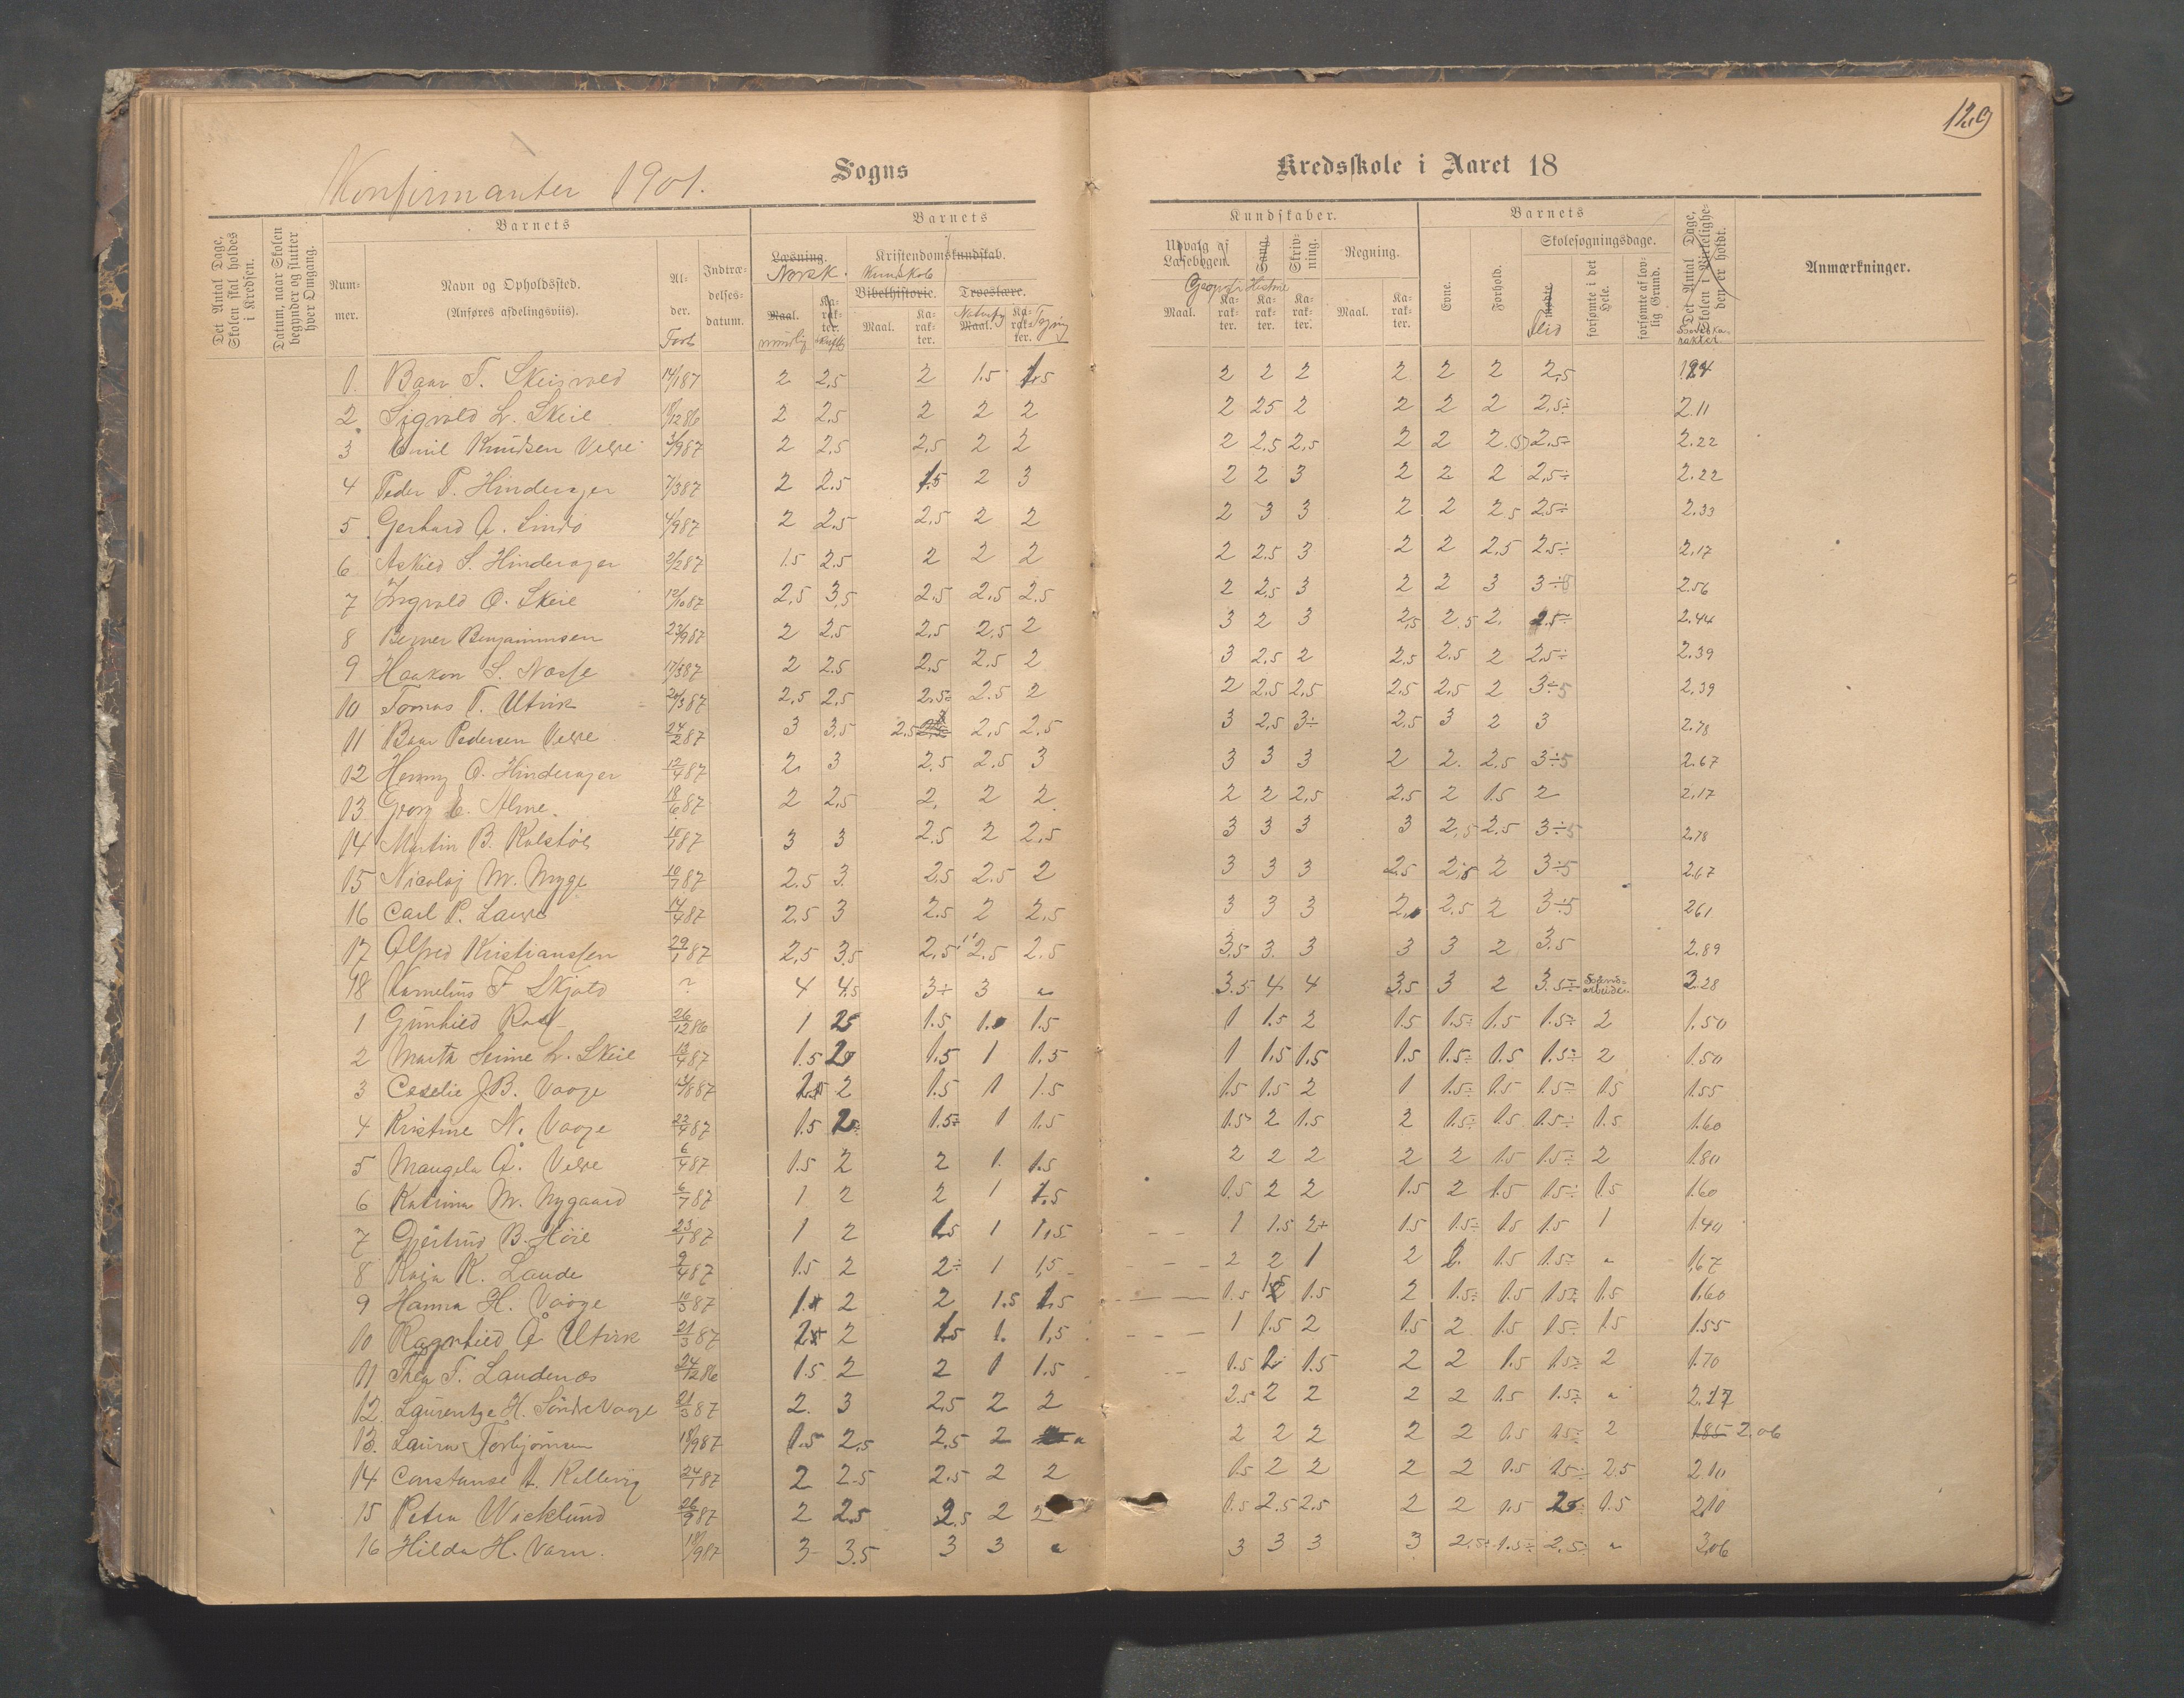 129
Konfirmanter 1901.
Sogns
Kredsskole i Aaret 18
Det Antal Dage, Skolen skal holdes i Kredsen.
Datum, naar Skolen begynder og slutter hver Omgang.
Barnets
Nummer.
Navn og Opholdssted.
(Anføres afdelingsviis).
Alder.
Født
Indtrædelsesdatum.
Barnets
Læsning.
Norsk.
Maal.
mundlig
Karakter.
Kristendomskundskab.
Kundskab
Bibelhistorie.
Maal.
Karakter.
Troeslære.
Maal.
Karakter.
Kundskaber.
Udvalg af Læsebogen.
Maal.
Karakter.
Sang.
Historie
Karakter.
Skrivning.
Karakter.
Regning.
Maal.
Karakter.
Barnets
Evne.
Forhold.
Skolesøgningsdage.
mødte
Flid
forsømte i det Hele.
forsømte af lovlig Grund.
Det Antal Dage, Skolen i Virkeligheden er holdt.
Hovedkarakter
Anmærkninger.
1. Baar T. Skeisvold 14/1 87 2 2,5 2 1.5 1.5 2 2 2 2 2 2 2,5
2. Sigvald L. Skeie 2 2,5 2 2 2 2 2,5 2 2 2 2 2,5÷ 2.11
3 Emil Knudsen Velve 2 2,5 2,5 2 2 2 2,5 2,5 2 2 2,5÷ 2.22
4 Peder P. Hinderager 7/3 87 2 2.5 1.5 2 3 2 2 3 2 2 2 2,5÷ 2.22
5 Gerhard A. Lindø 4/9 87 2 2,5 2,5 2 2 2 3 3 2 2 2,5 2,5÷ 2.33
6 Askild S. Hinderager 1.5 2.5 2 2 2 2 2,5 3 2 2 2,5 2,5÷ 2,17
7 Ingvald O. Skeie 12/10 87 2,5 3,5 2,5 2,5 2,5 2 2,5 3 2 2 3 2.56
8 Berner Benjaminsen 23/9 87 2 2,5 2,5 2,5 2 3 2 3 2,5 2.5 2. 2.5÷ 2.44
9 Haakon S. Nasse 17/3 87 2 2.5 2,5 2.5 2 3 2,5 2 2,5 2.5 2 2,5÷ 2.39
10 Tomas T. Utvik 20/3 87 2,5 2,5 2,5 2.5 2 2 2,5 2,5 2,5 2,5 2 3÷5 2.39
11 Baar Pedersen Velve 24/2 87 3 3,5 2.5 2,5 2,5 3 2,5 3÷ 2,5 3 2 3 2.78
12 Henny O. Hinderager 12/4 87 2. 3 2,5 2.5 3 3 3 3 2 2. 2.5 3÷5 2.67
13 Georg E. Alme 18/6 87 2 2,5 2, 2 2 2 2 2,5 2.5 2 1.5 2 2.17
14 Martin B. Kolstø 3 3 2.5 2 2,5 3 3 3 3 2,5 2.5 3÷5 2.78
15 Nicolaj M. Myge 10/7 87 2.5 3. 2.5 2.5 2 3 3 3 2.5 2 3÷5 2.67
16 Carl P. 14/4 87 2.5 3 2.5 2 2,5 3 3 3 2. 2.5 2 3÷5 2.61
17 Alfred Kristianssen 29/1 87 2,5 3,5 2,5 2.5 2.5 3,5 3. 3 3 3 2 3.5 2.89
18 Kornelius T. Skjold ? 4 4,5 3÷ 3 " 3.5 4 4 3,5 3 2 3.5÷ 3.28
1 Gunhild 26/12 86 1 2.5 1.5 1. 1.5 1 1.5 2 1.5 1.5÷ 1.5 1.5÷ 2 1.50
2 Marta Serine L. Skeie 13/4 87 1.5 2 1.5 1 1.5 1 1,5 1.5 1.5 1.5÷ 1.5 1.5÷ 2 1.50
3 Ceselie J.B. Vaage 1.5 2 1.5 1 1.5 1.5 1.5 2 1 1.5÷ 1.5 1.5÷ 1.5 1.55
4 Kristine N. Vaage 22/4 87 1.5 2÷ 1.5÷ 1 1.5 1.5÷ 2 1.5 2 1.5÷ 1.5 1.5÷ 1.5 1.60
5 Mangela A. Velve 6/4 87 1.5 2 2 1. 1.5 2 2 2 2 2 1.5 1.5÷ 2 1.80
6 Katrina M. Nygaard 6/7 87 1 2 2 1 1.5 1.5 2 2 1.5 2 1.5 1.5÷ 1.5 1.60
7 Gjertrud B. Høie 23/1 87 1 2 1.5 1 1.5 1 1.5 2+ 1.5 1.5÷ 1.5 1.5 1 1.40
8 Kaia K. Lande 9/4 87 1.5 2 2÷ 1 1,5 2 2 1 2 2. 1.5 1.5÷ " 1,67
9 Hanna H. Vaage 10/3 87 1. 2 2 1.5 1.5 1.5 1.5 1.5 2 1.5÷ 1.5 1.5÷ 1.5 1.60
10 Ragnhild Å Utvik 21/3 87 2 1.5 1. 1,5 1 1.5 2 1.5 2 1.5 1.5÷ 1.5 1.55
11 Thea T. Landenæs 24/12 86 1.5 2 2 1 1.5 1.5 2 1.5 2 2 1.5 1.5÷ 2 1.70
12. Laurentze H. Søndre Vaage 21/3 87 2. 3 2,5 2 2 2.5 2 2 2 2 1.5 1.5÷ " 2.17
13. Laura Torbjørnsen 18/9 87 1.5 2,5 2.5 2 " 2 2 2 2 2 1.5 1.5÷ 2 1.85 2.06
14 Constanse A. Kallevig 24/1 87 2 2.5 2.5 2 2 1.5 2 2 2 2 1.5 1.5÷ 2.5 2.10
15 Petra Wicklund 26/9 87 2 2.5 2.5 2 2 1.5 2.5 2.5 2 2 1.5 1.5 2.10
16 Hilda H. Varn. 18/9 87 3 3.5 3 3 " 3 3 3 3 2,5÷ 1.5÷ 2.5÷ " 3,06